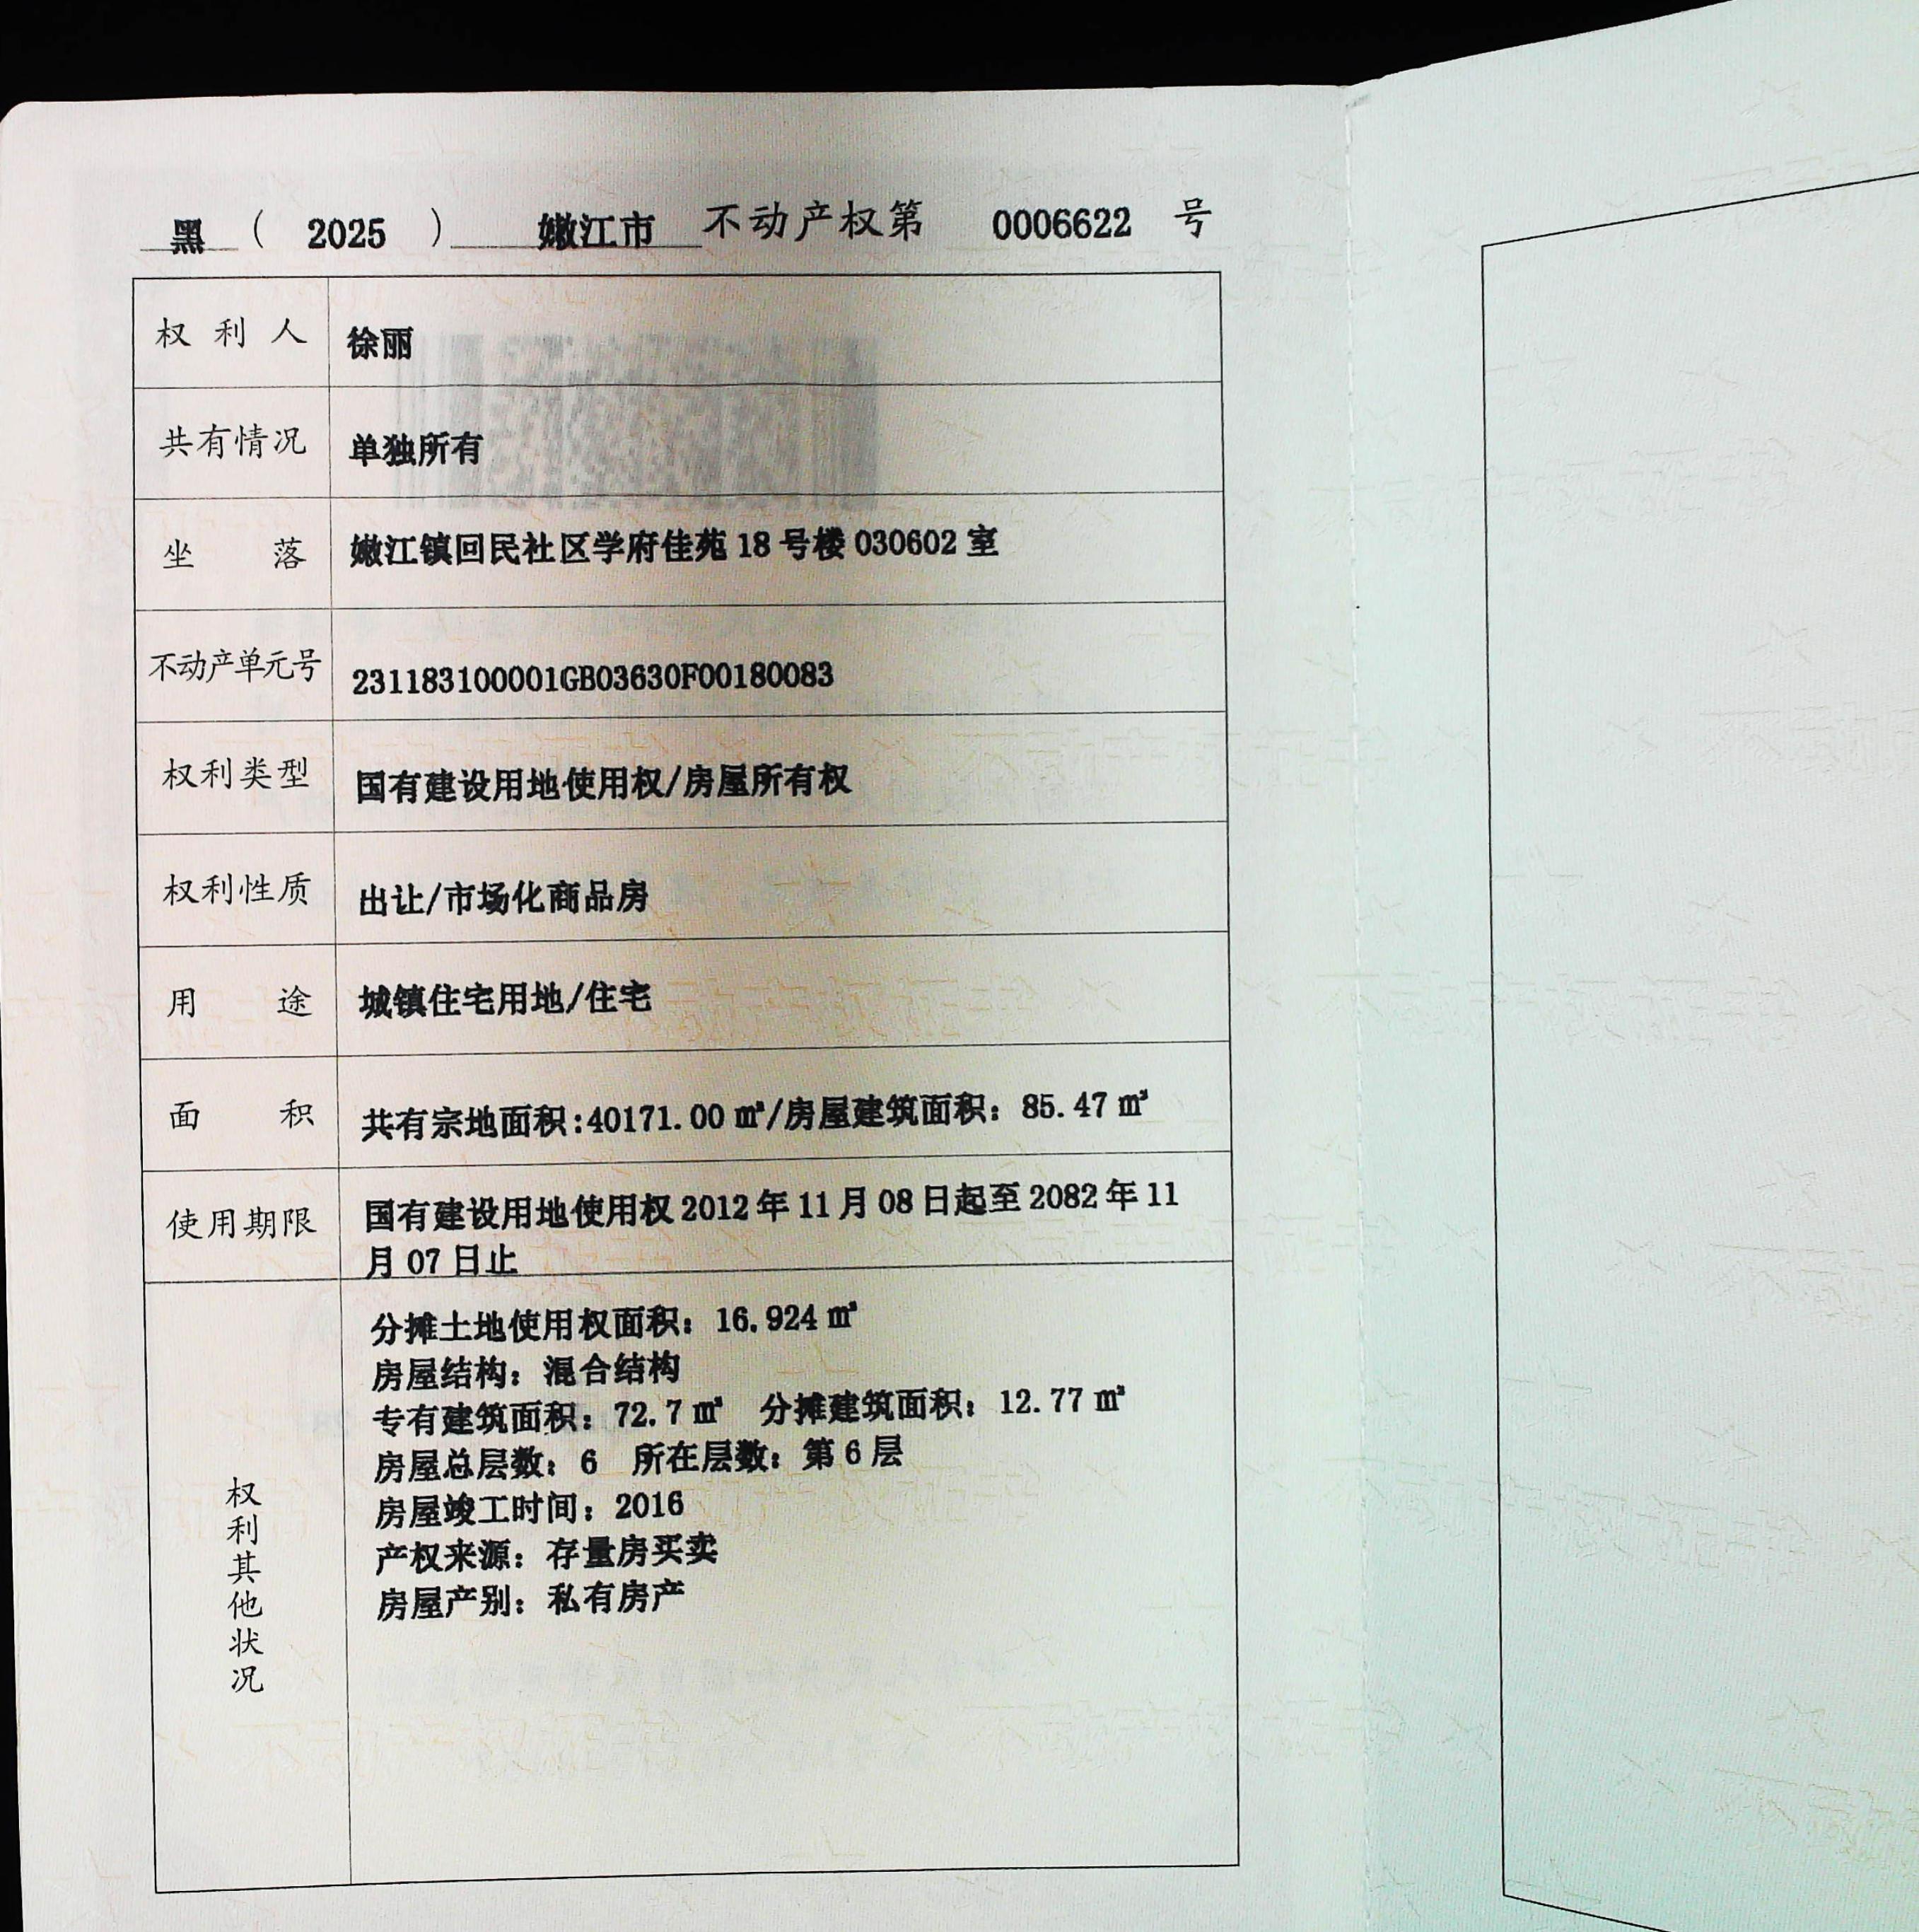 黑 ( 2025 ) 嫩江市 不动产权第 0006622 号
权利人 徐丽
共有情况 单独所有
坐落 嫩江镇回民社区学府佳苑 18 号楼 030602 室
不动产单元号 231183100001GB03630F00180083
权利类型 国有建设用地使用权/房屋所有权
权利性质 出让/市场化商品房
用途 城镇住宅用地/住宅
面积 共有宗地面积:40171.00 ㎡/房屋建筑面积: 85.47 ㎡
使用期限 国有建设用地使用权 2012 年 11 月 08 日起至 2082 年 11
月 07 日止
权利其他状况
分摊土地使用权面积: 16.924 ㎡
房屋结构: 混合结构
专有建筑面积: 72.7 ㎡ 分摊建筑面积: 12.77 ㎡
房屋总层数: 6 所在层数: 第 6 层
房屋竣工时间: 2016
产权来源: 存量房买卖
房屋产别: 私有房产